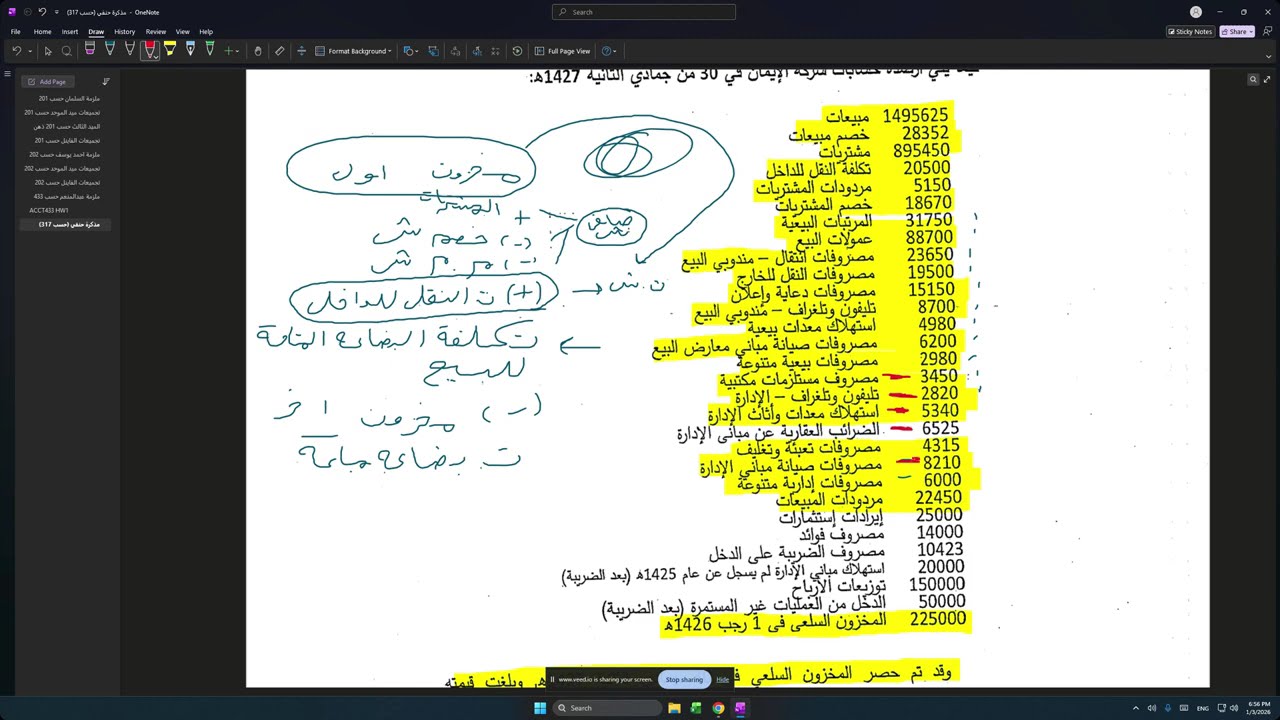 مذكرة حنفي (حسب 317) - OneNote
Search
File Home Insert Draw History Review View Help
Sticky Notes Share
Format Background Full Page View
Add Page
ملزمة السلمان حسب 201
تجميعات عبد الموحد حسب 201
الميد الثالث حسب 201 ذهن
تجميعات الفاينل حسب 201
ملزمة احمد يوسف حسب 202
تجميعات ميد الموحد حسب 202
تجميعات الفاينل حسب 202
ملزمة عبدالمنعم حسب 433
ACCT433 HW1
مذكرة حنفي (حسب 317)
حسابات شركة الإيمان في 30 من جمادي الثانية 1427هـ:
1495625 مبيعات
28352 خصم مبيعات
895450 مشتريات
20500 تكلفة النقل للداخل
5150 مردودات المشتريات
18670 خصم المشتريات
31750 المرتبات البيعية
88700 عمولات البيع
23650 مصروفات انتقال – مندوبي البيع
19500 مصروفات النقل للخارج
15150 مصروفات دعاية وإعلان
8700 تليفون وتلغراف – مندوبي البيع
4980 استهلاك معدات بيعية
6200 مصروفات صيانة مباني معارض البيع
2980 مصروفات بيعية متنوعة
3450 مصروف مستلزمات مكتبية
2820 تليفون وتلغراف – الإدارة
5340 استهلاك معدات وأثاث الإدارة
6525 الضرائب العقارية عن مباني الإدارة
4315 مصروفات تعبئة وتغليف
8210 مصروفات صيانة مباني الإدارة
6000 مصروفات إدارية متنوعة
22450 مردودات المبيعات
25000 إيرادات إستثمارات
14000 مصروف فوائد
10423 مصروف الضريبة على الدخل
20000 استهلاك مباني الإدارة لم يسجل عن عام 1425هـ (بعد الضريبة)
150000 توزيعات الأرباح
50000 الدخل من العمليات غير المستمرة (بعد الضريبة)
225000 المخزون السلعي في 1 رجب 1426هـ
وقد تم حصر المخزون السلعي
هـ, وبلغت قيمته
مخزون اول
+ المشتريات
(-) خصم ش
(-) م . م ش
صافي
(+) ت النقل للداخل
ت . ش
تكلفة البضاعة المتاحة
للبيع
(-) مخزون اخر
ت. بضاعة مباعة
www.veed.io is sharing your screen. Stop sharing Hide
Search
ENG
6:56 PM
1/3/2026